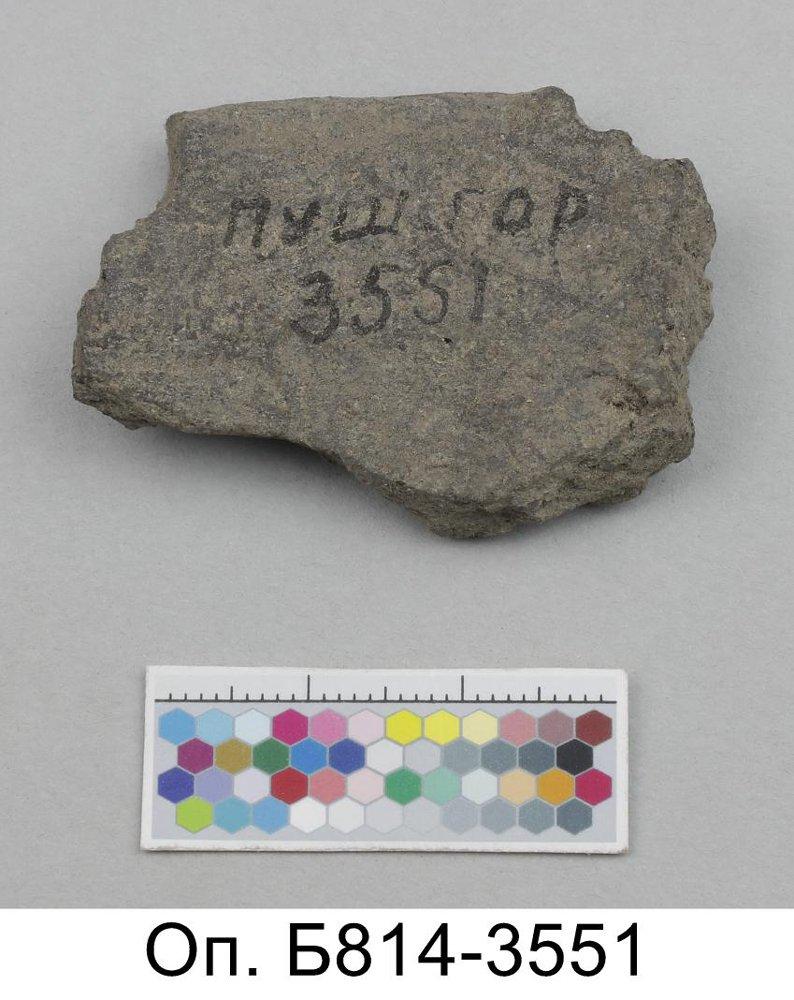 ПУШ ГОР
3551
Оп. Б814-3551